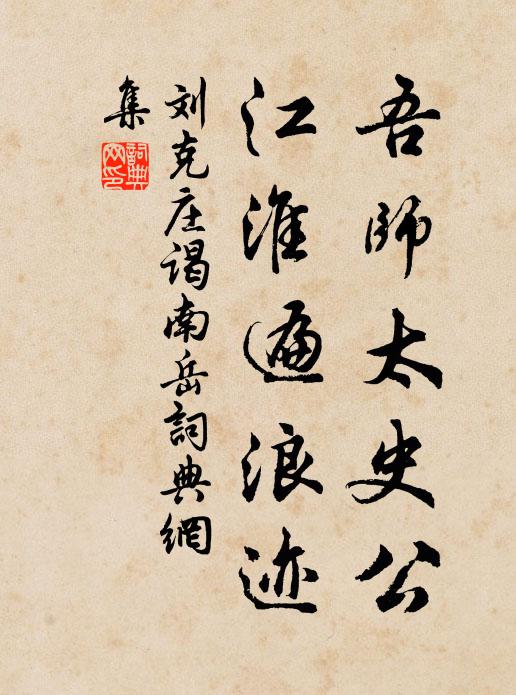 吾师太史公
江淮遍浪迹
刘克庄谒南岳詞典網
集
詞典网印